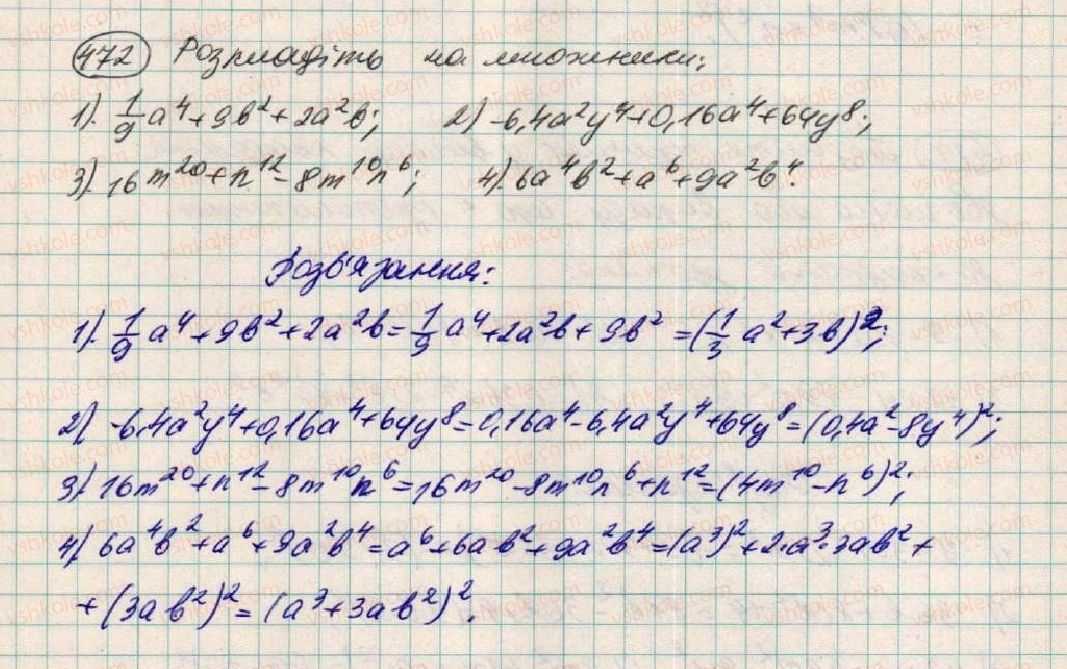 472 Розкладіть на множники:
1). 1/9 a⁴+9b²+2a²b; 2) -6,4a²y⁴+0,16a⁴+64y⁸;
3). 16m²⁰+n¹²-8m¹⁰n⁶; 4). 6a⁴b²+a⁶+9a²b⁴.
Розв'язання:
1). 1/9 a⁴+9b²+2a²b=1/9 a⁴+2a²b+9b²=(1/3 a²+3b)²;
2) -6,4a²y⁴+0,16a⁴+64y⁸=0,16a⁴-6,4a²y⁴+64y⁸=(0,4a²-8y⁴)²;
3). 16m²⁰+n¹²-8m¹⁰n⁶=16m²⁰-8m¹⁰n⁶+n¹²=(4m¹⁰-n⁶)²;
4) 6a⁴b²+a⁶+9a²b⁴=a⁶+6ab²+9a²b⁴=(a³)²+2·a³·3ab²+
+(3ab²)²=(a³+3ab²)².
vshkole.com